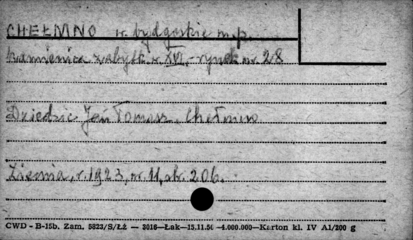 CHEŁMNO w. bydgoskie m.p.
kamienica zabytk. w. XVI,- rynek nr. 28
Dziedzic Jan Tomasz, Chełmno
Ziemia, r. 1923, nr. 11, str. 206.
CWD - B-15b. Zam. 5823/S/Łż — 3016—Łak—15.11.56 -4.000.000—Karton kl. IV A1/200 g